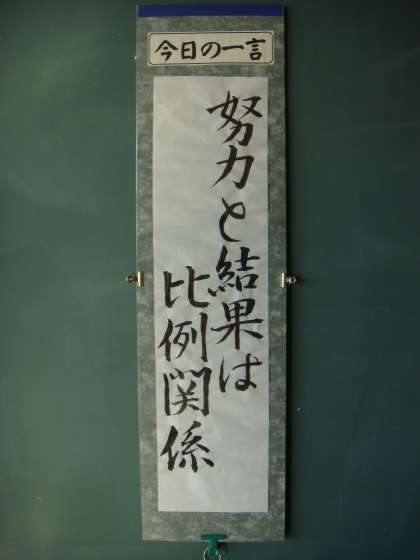 今日の一言
努力と結果は
比例関係